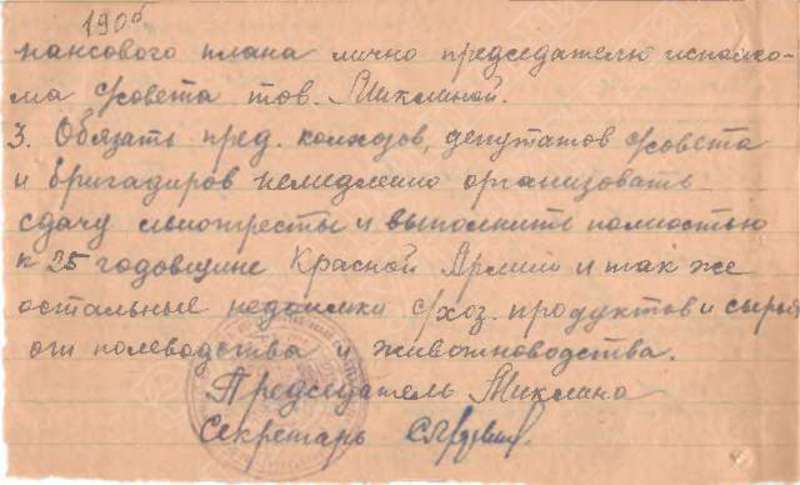 190об
нансового плана лично председателю исполко-
ма с/совета тов. Миклиной.
3. Обязать пред. колхозов, депутатов с/совета
и бригадиров немедленно организовать
сдачу льнотресты и выполнить полностью
к 25 годовщине Красной Армии и так же
остальные недоимки с/хоз. продуктов и сырья
от полеводства и животноводства.
Председатель Миклина
Секретарь